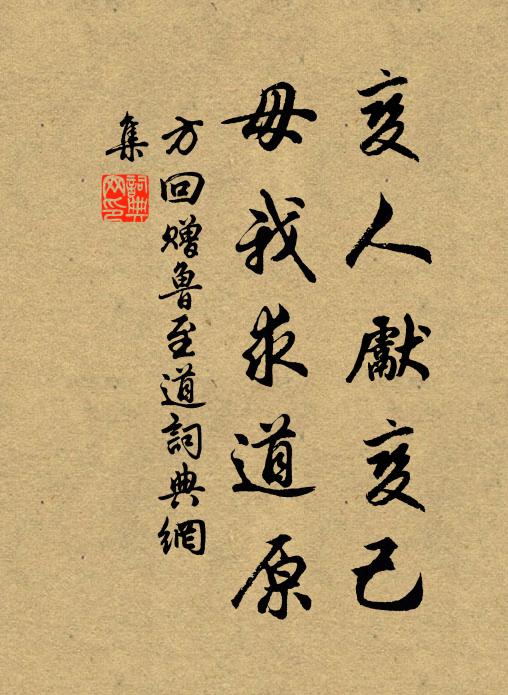 変人獻変己
毋我求道原
方回贈魯至道詞典網
集
詞典
网印